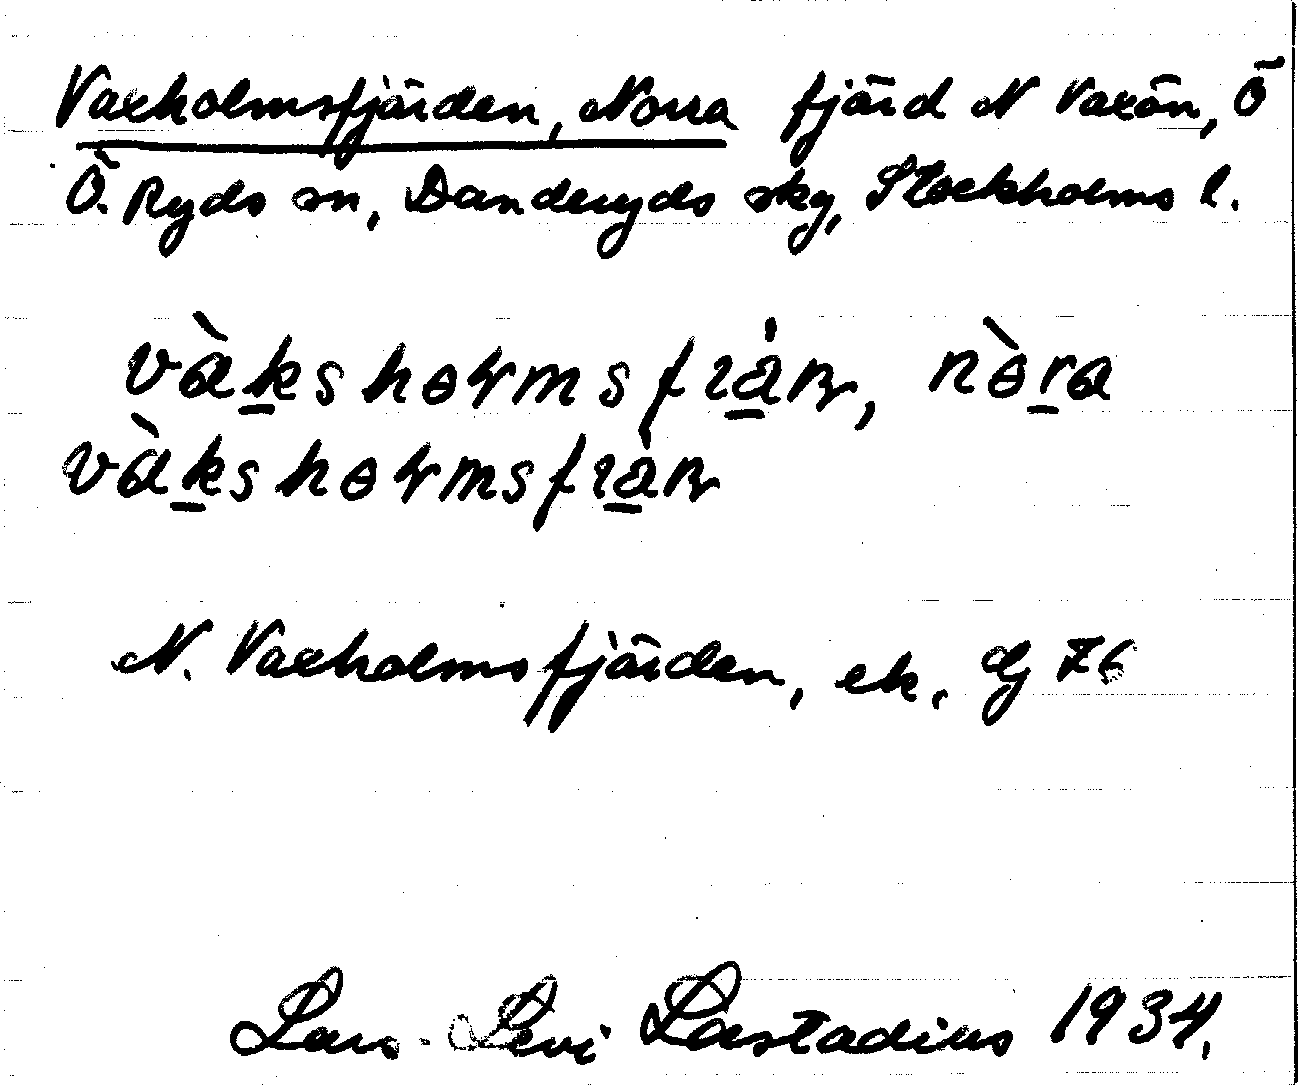 Vaxholmsfjärden, Norra fjärd N Vaxön, Ö
Ö. Ryds sn, Danderyds skg, Stockholms l.
vàkshɵɽmsfɩän, nɵ̀ra
vàkshɵɽmsfɩän
N. Vaxholmsfjärden, ek.
Lars-Levi Læstadius 1934.